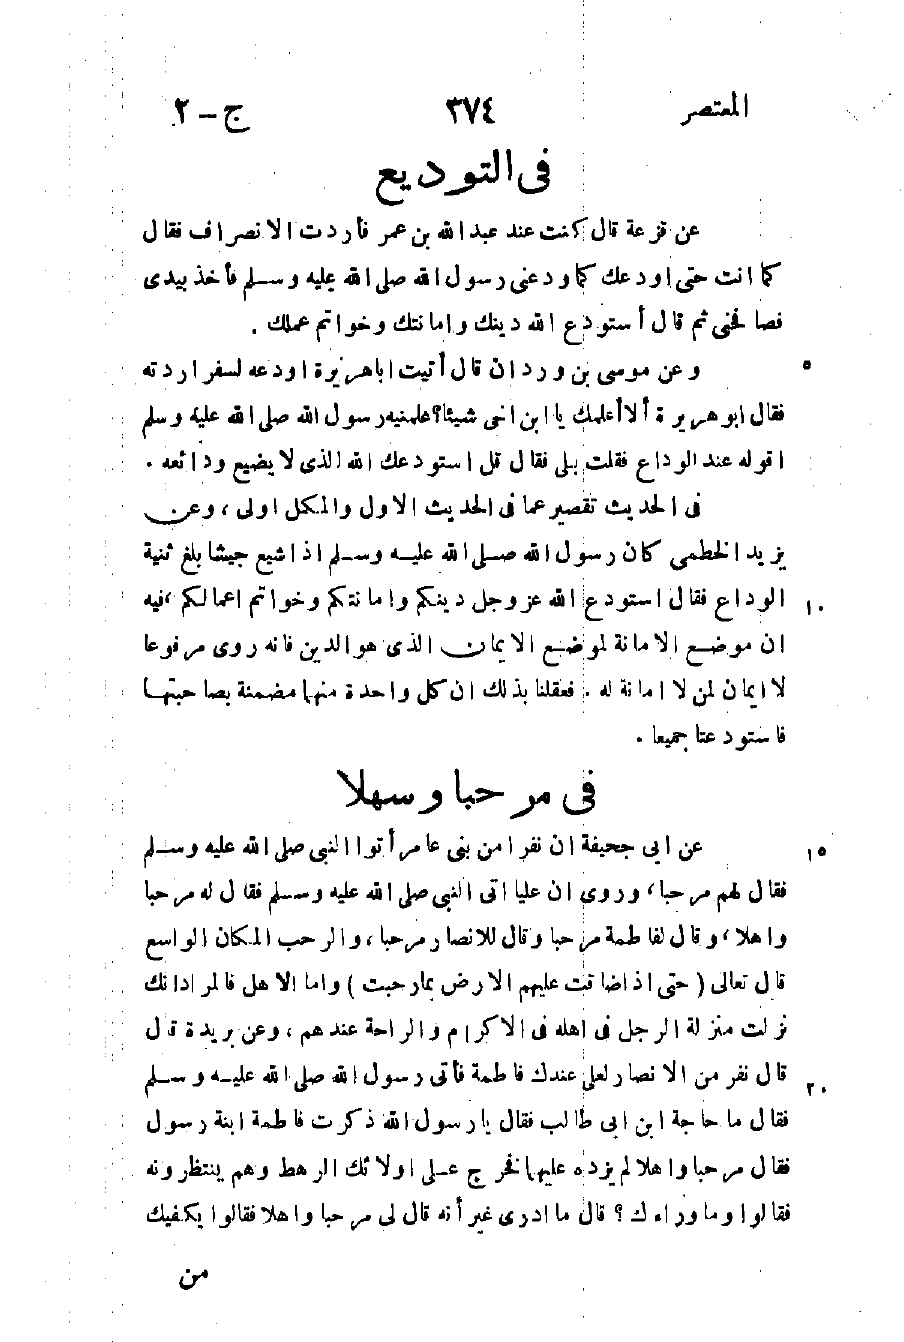 المعتصر ٣٧٤ ج - ٢
فى التوديع
عن قزعة قال كنت عند عبد الله بن عمر فأردت الانصراف فقال
كما انت حتى اودعك كما ودعنى رسول الله صلى الله عليه وسلم فأخذ بيدى
فصافحنى ثم قال أستودع الله دينك وامانتك وخواتم عملك .
وعن موسى بن وردان قال أتيت اباهريرة اودعه لسفر اردته ٥
فقال ابوهريرة ألاأعلمك ياابن اخى شيئا؟علمنيه رسول الله صلى الله عليه وسلم
اقوله عند الوداع فقلت بلى فقال قل استودعك الله الذى لا يضيع ودائعه .
فى الحديث تقصير عما فى الحديث الاول والمكل اولى ، وعن
يزيد الخطمى كان رسول الله صلى الله عليه وسلم اذا شيع جيشا بلغ ثنية
الوداع فقال استودع الله عزوجل دينكم وامانتكم وخواتم اعمالكم ، فيه ١٠
ان موضع الامانة لموضع الايمان الذى هوالدين فانه روى مرفوعا
لاايمان لمن لا امانة له . فعقلنا بذلك ان كل واحدة منها مضمنة بصاحبتها
فاستودعتا جميعا .
فى مرحبا وسهلا
عن ابى جحيفة ان نفرا من بنى عامر أتوا النبى صلى الله عليه وسلم ١٥
فقال لهم مرحبا ، وروى ان عليا اتى النبى صلى الله عليه وسلم فقال له مرحبا
واهلا ، وقال لفاطمة مرحبا وقال للانصار مرحبا ، والرحب المكان الواسع
قال تعالى ( حتى اذا ضاقت عليهم الارض بمارحبت ) واما الاهل فالمراد انك
نزلت منزلة الرجل فى اهله فى الاكرام والراحة عندهم ، وعن بريدة قال
قال نفر من الانصار لعلى عندك فاطمة فأتى رسول الله صلى الله عليه وسلم ٢٠
فقال ما حاجة ابن ابى طالب فقال يارسول الله ذكرت فاطمة ابنة رسول
فقال مرحبا واهلا لم يزده عليها فخرج على اولائك الرهط وهم ينتظرونه
فقالوا وما وراءك ؟ قال ما ادرى غير أنه قال لى مرحبا واهلا فقالوا يكفيك
من